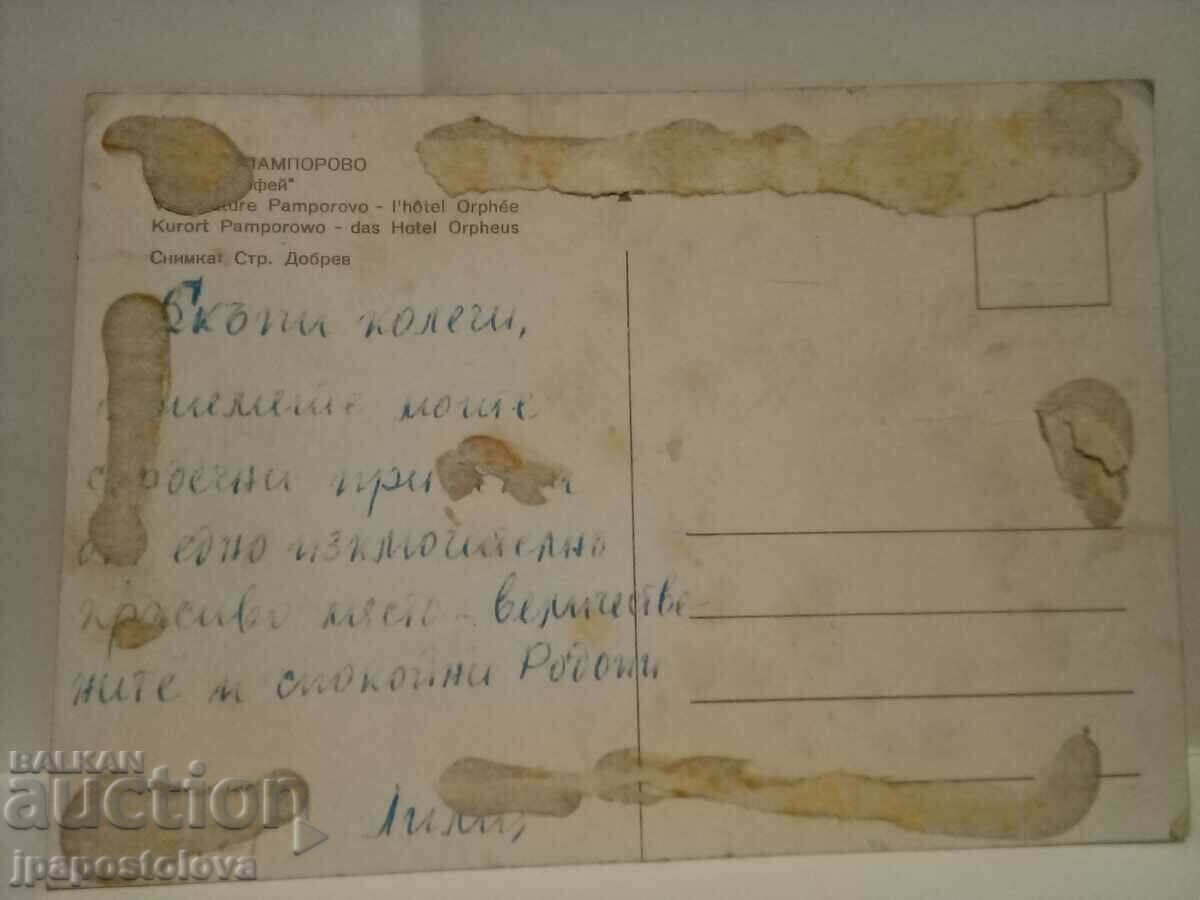 ПАМПОРОВО
Pamporovo - l'hôtel Orphée
Kurort Pamporowo - das Hotel Orpheus
Снимка: Стр. Добрев
Скъпи колеги,
приемете моите
сърдечни
едно изключително
красиво място - величестве-
ните и спокойни Родопи
Лили,
BALKAN
auction
jpapostolova